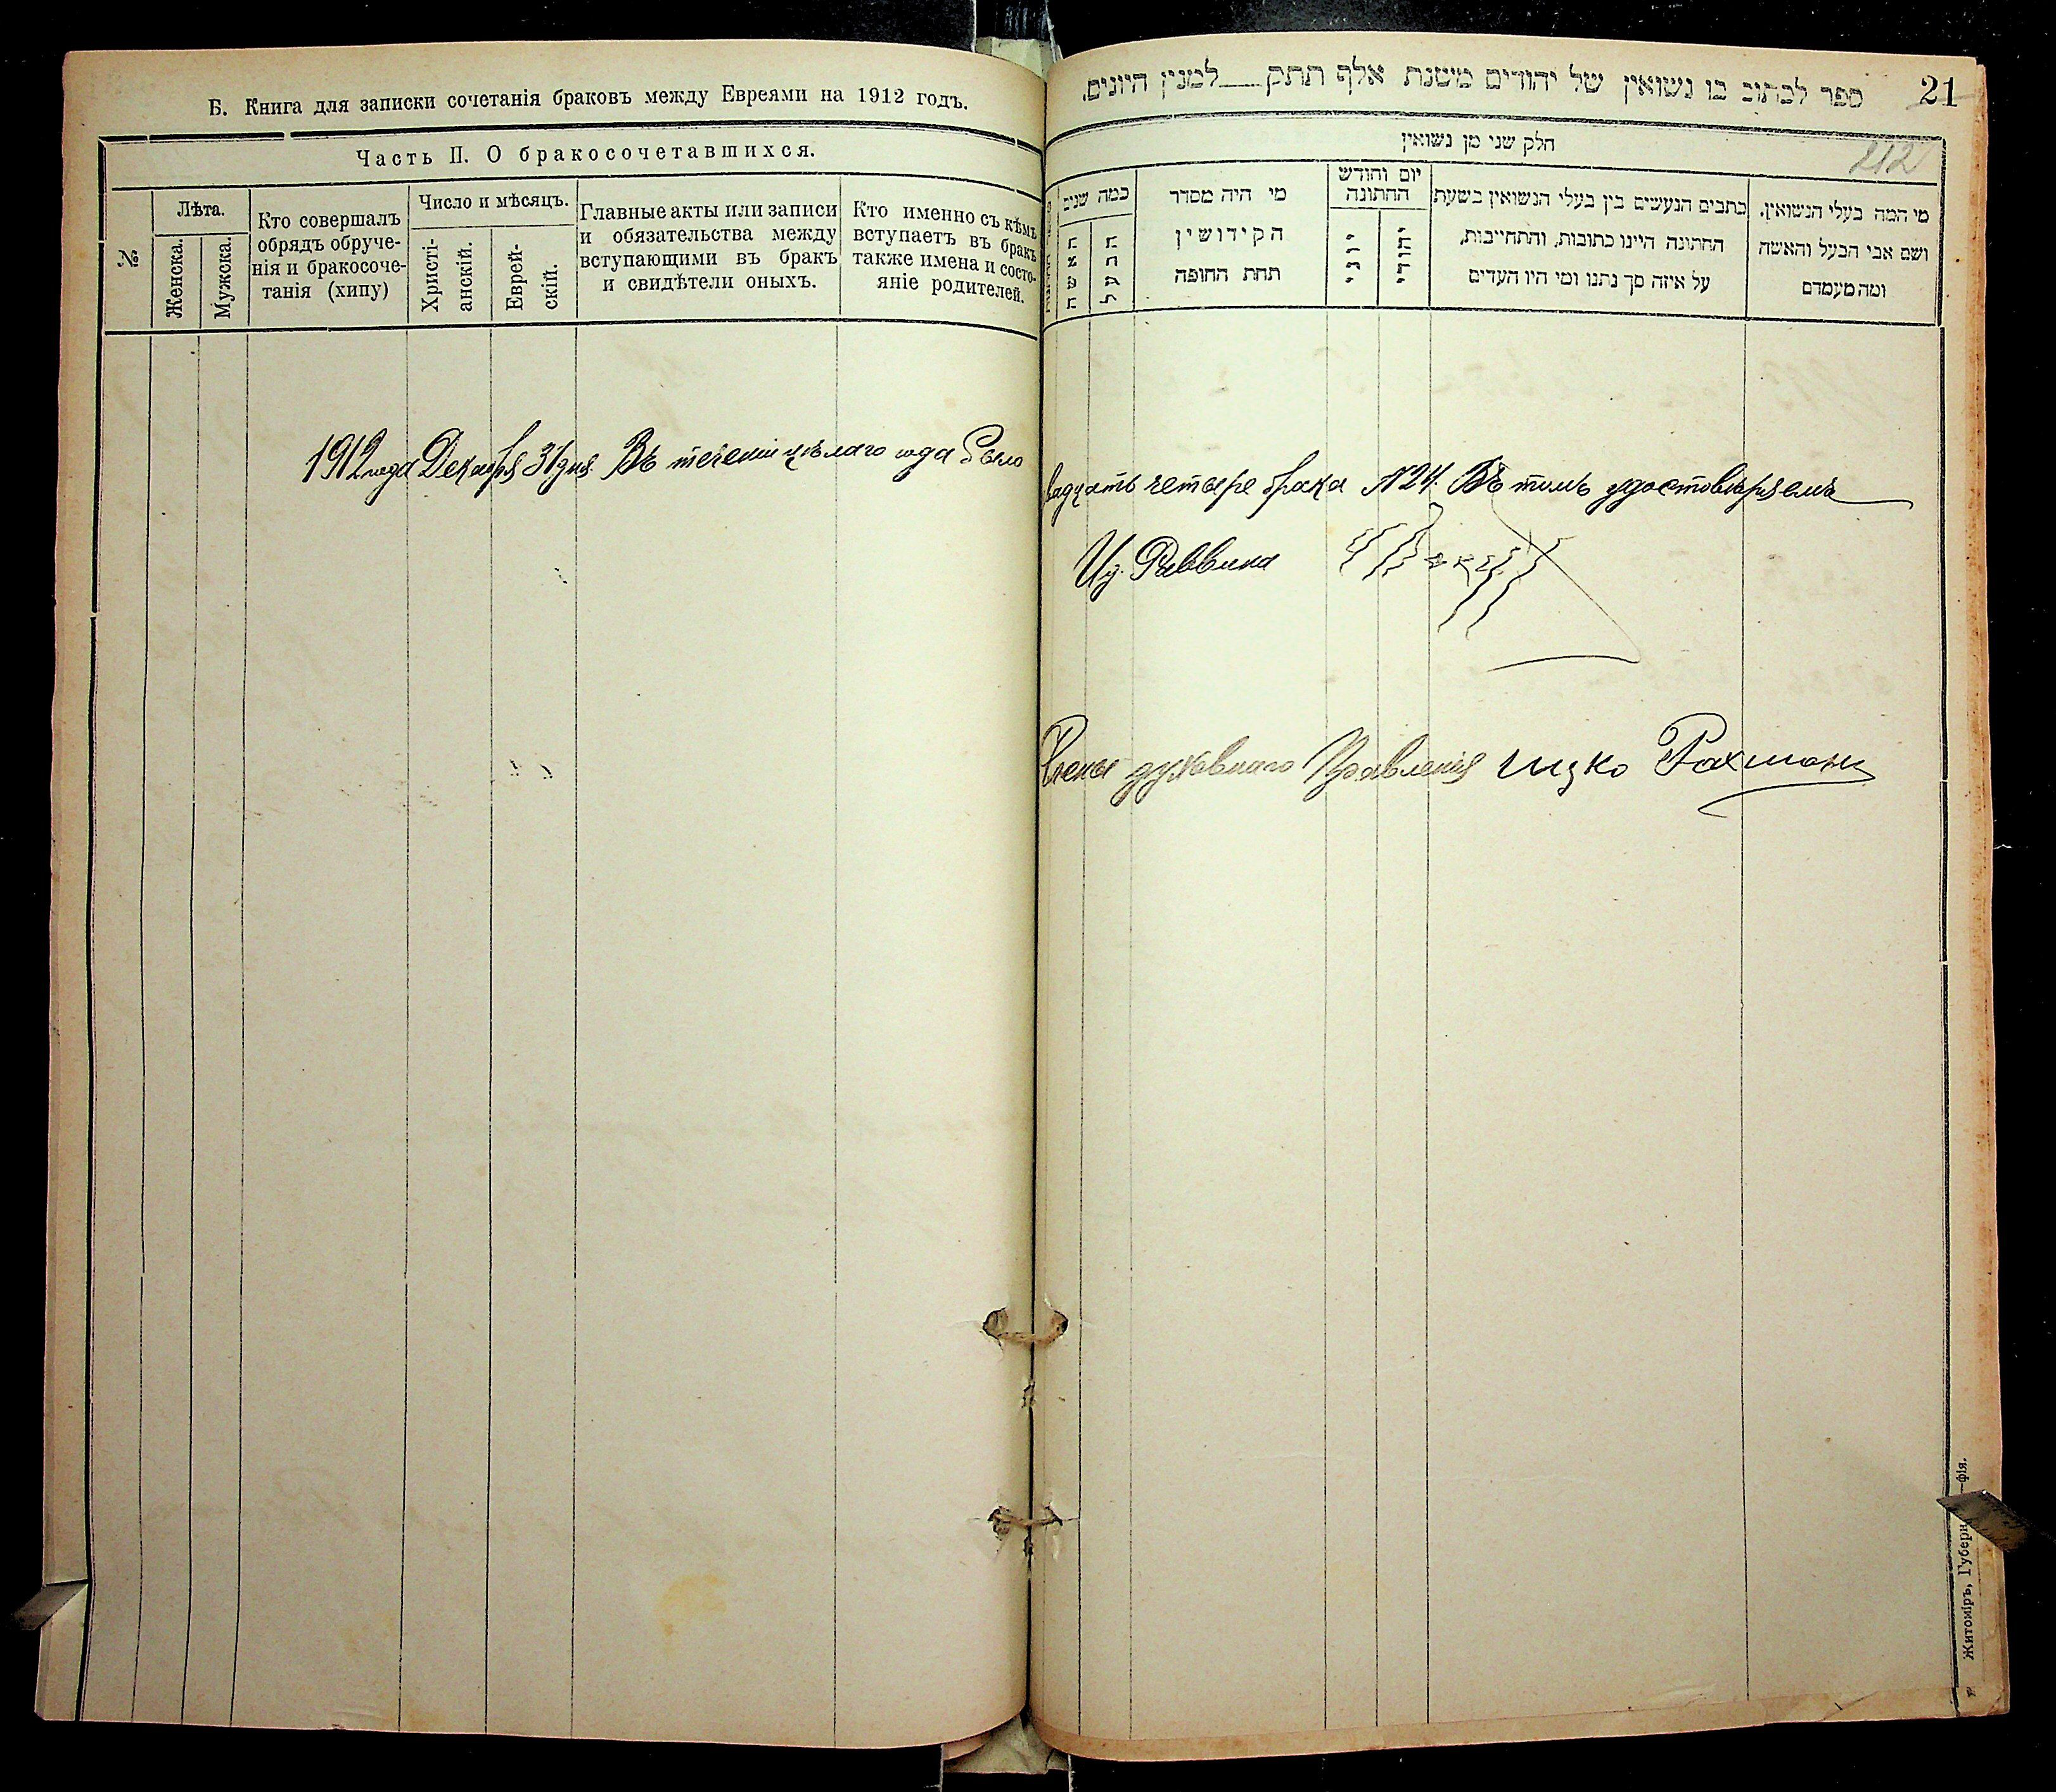 Б. Книга для записки сочетанія браковъ между Евреями на 1912 годъ.
Часть II. О бракосочетавшихся.
№
Лѣта.
Женска.
Мужска.
Кто совершалъ
обрядъ обруче-
нія и бракосоче-
танія (хипу)
Число и мѣсяцъ.
Христі-
анскій.
Еврей-
скій.
Главные акты или записи
и обязательства между
вступающими въ бракъ
и свидѣтели оныхъ.
Кто именно съ кѣмъ
вступаетъ въ бракъ
также имена и состо-
яніе родителей.
1912 года Декабря 31 дня. Въ теченіи цѣлаго года было
21
ספר לכתוב בו נשואין של יהודים משנת אלף תתק___למנין היונים.
212
חלק שני מן נשואין
מי המה בעלי הנשואין.
ושם אבי הבעל והאשה
ומה מעמדם
כתבים הנעשים בין בעלי הנשואין בשעת
החתונה היינו כתובות, והתחייבות,
על איזה סך נתנו ומי היו העדים
יום וחודש
החתונה
יהודי
יוני
מי היה מסדר
הקידושין
תחת החופה
כמה שנים
הבעל
האשה
вадцать четыре брака №24. Въ томъ удостовѣряемъ
И. д. Раввина
Члены духовнаго Правленія Ицко Рахманъ
Житоміръ, Губерн
фія.